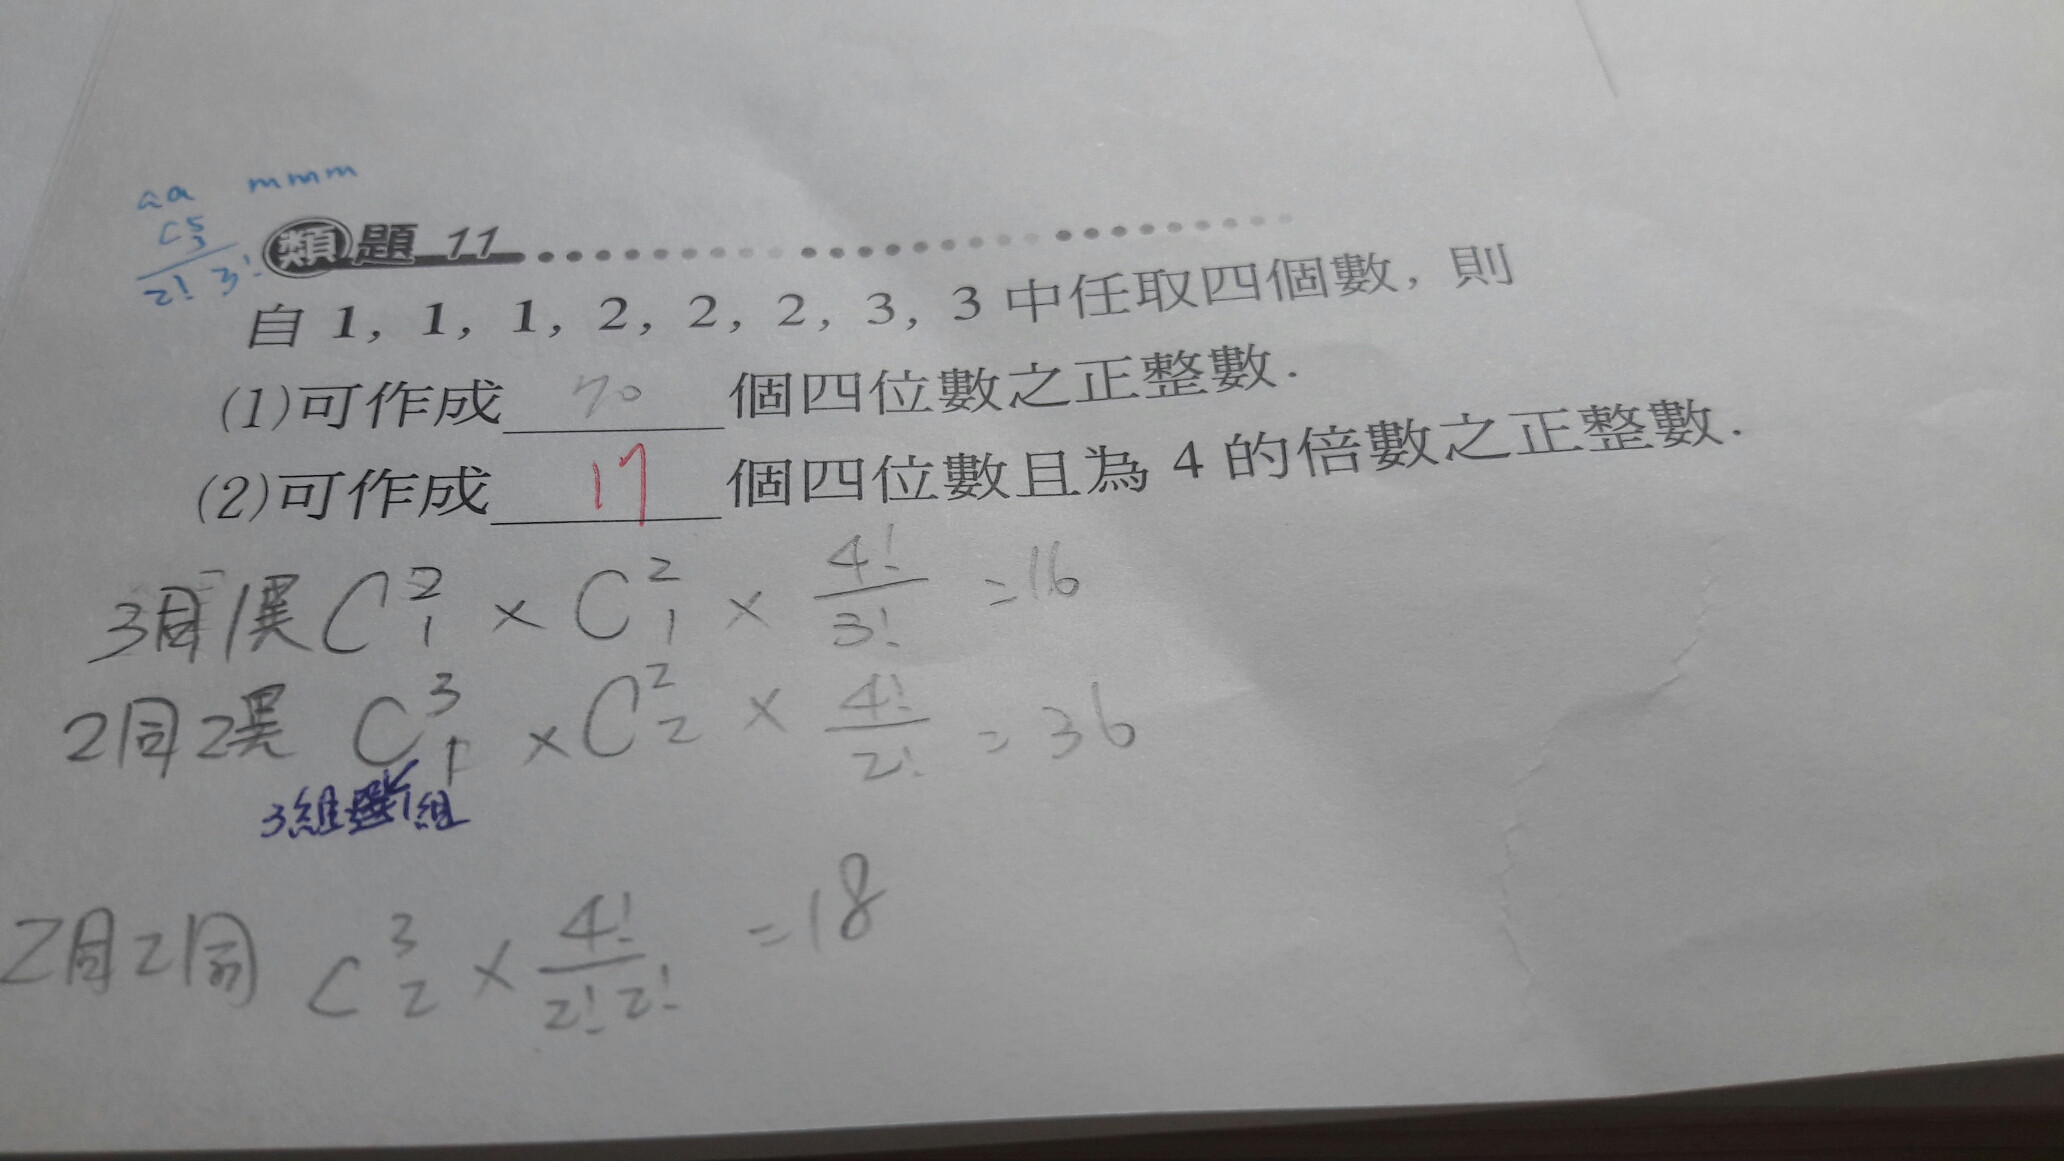 aa mmm
C 5 3
2! 3!
類題 11
自 1, 1, 1, 2, 2, 2, 3, 3 中任取四個數, 則
(1)可作成 70 個四位數之正整數.
(2)可作成 17 個四位數且為 4 的倍數之正整數.
3同1異 C 2 1 × C 2 1 × 4!/3! = 16
2同2異 C 3 1 × C 2 2 × 4!/2! = 36
3組選1組
2同2同 C 3 2 × 4!/2!2! = 18